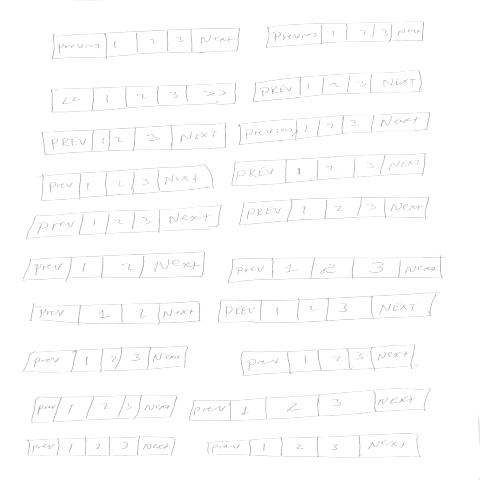 Previous 1 2 3 Next
Previous 1 2 3 Next
<< 1 2 3 >>
PREV 1 2 3 NEXT
PREV 1 2 3 NEXT
Previous 1 2 3 Next
Prev 1 2 3 Next
PREV 1 2 3 NEXT
Prev 1 2 3 Next
PREV 1 2 3 Next
Prev 1 2 Next
Prev 1 2 3 Next
Prev 1 2 Next
PREV 1 2 3 NEXT
Prev 1 2 3 Next
Prev 1 2 3 Next
Prev 1 2 3 Next
Prev 1 2 3 NEXT
Prev 1 2 3 Next
Prev 1 2 3 Next